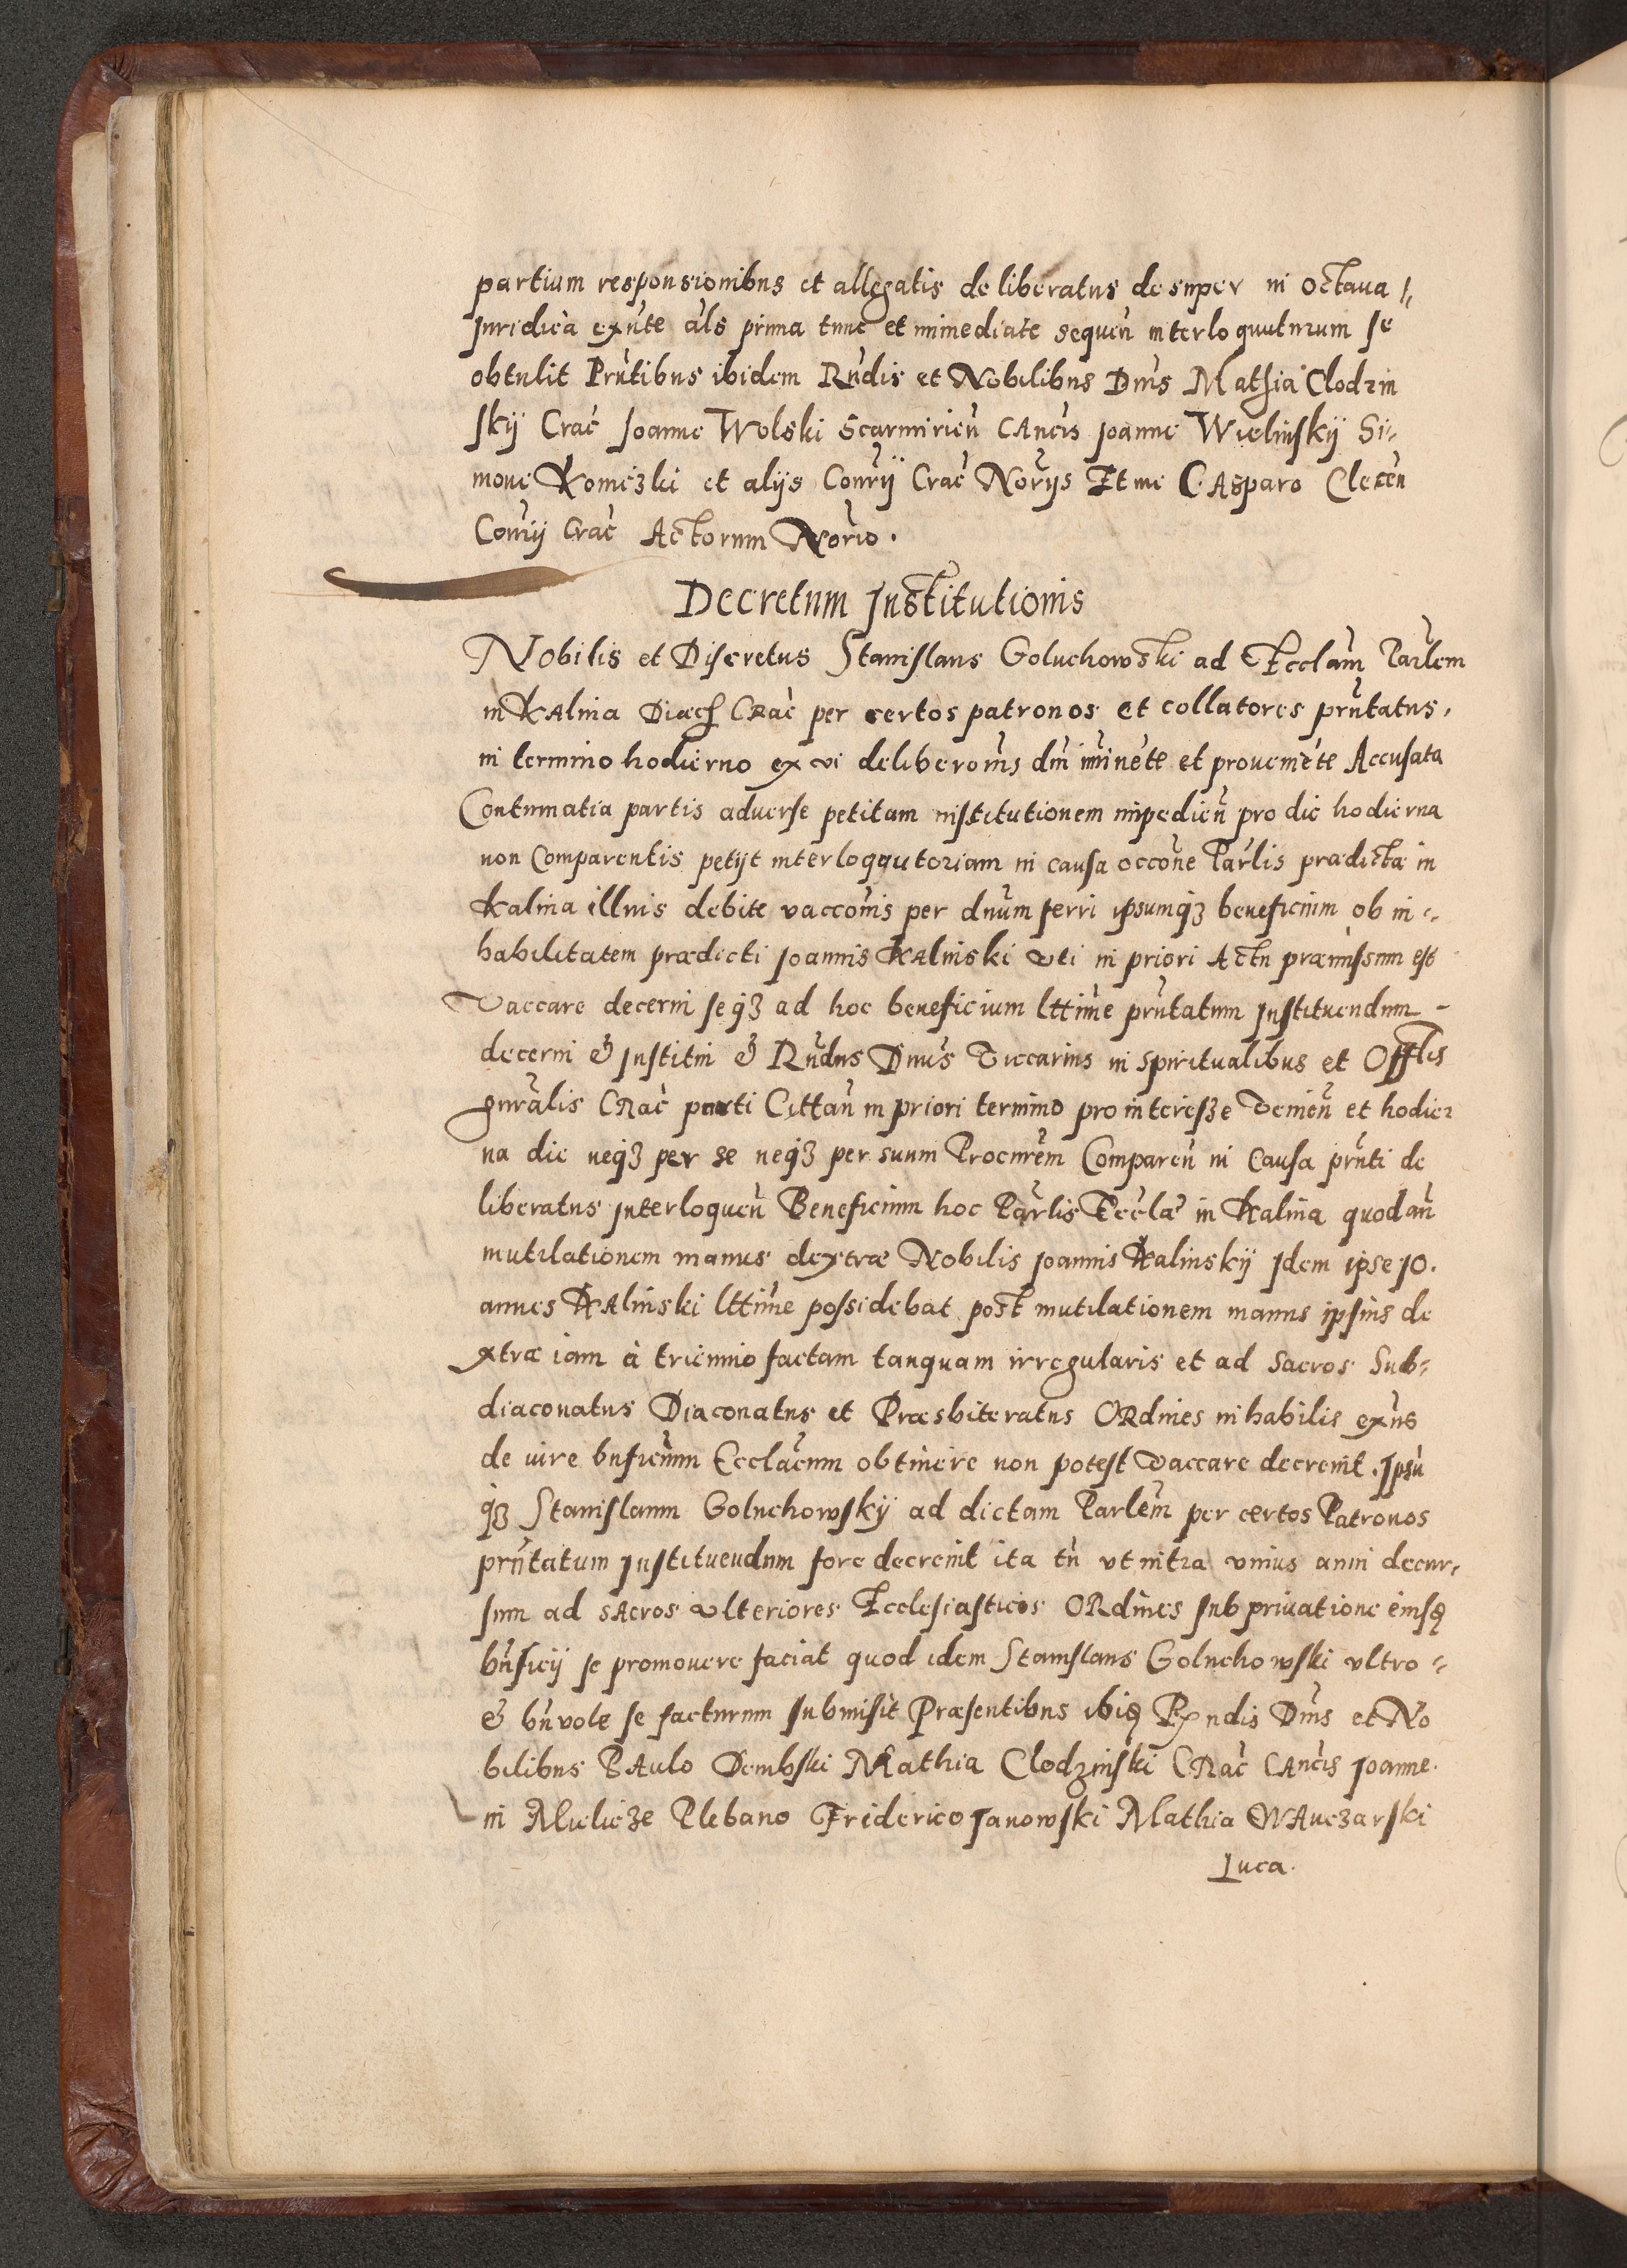 partium responsionibus et allegatis deliberatus desuper in octaua
Juridica exñte als prima tunc et immediate sequeñ interloquuturum se
obtulit Prñtibus ibidem Rndis et Nobilibus Dnis Mathia Clodzin
skij Crac Joanne Wolski Scarmirien Cancis Joanne Wielinskij Si-
mone Komezki et alijs Conrij Crac Norijs Et me Casparo Clecen
Conrij Crac Actorum Norio.
Decretum Institutionis
Nobilis et Discretus Stanislaus Goluchowski ad Ecclam Parlem
in Kalina Diaec Crac per certos patronos et collatores prñtatus,
in termino hodierno ex vi deliberonis dni iminete et proueniete Accusata
Contumatia partis aduerse petitam institutionem impedien pro die hodierna
non Comparentis petijt interloqqutoriam in causa occone Parlis prædictæ in
Kalina illius debite vacconis per dnum ferri ipsumqz beneficium ob in-
habilitatem prædicti Joannis Kalinski vti in priori Actu præmissum est
Vaccare decerni seqz ad hoc beneficium lttime prñtatum Instituendum -
decerni & Institui & Rndus Dnus Viccarius in Spiritualibus et Offlis
gnralis Crac parti Cittan in priori termino pro interesze Venien et hodier
na die neqz per se neqz per suum Procurem Comparen in Causa prñti de
liberatus Interloquen Beneficium hoc Parlis Eccla in Kalina quod an
mutilationem manus dextræ Nobilis Joannis Kalinskij Idem ipse Jo.
annes Kalinski lttime possidebat post mutilationem manus ipsius de
xtræ iam à triennio factam tanquam irregularis et ad Sacros Sub-
diaconatus Diaconatus et Præsbiteratus Ordines inhabilis exñs
de iure bnficium Ecclacum obtinere non potest Vaccare decreuit. Ipsu
qz Stanislaum Goluchowskij ad dictam Parlem per certos Patronos
prñtatum Instituendum fore decreuit ita tñ vt intra vnius anni decur-
sum ad sacros vlteriores Ecclesiasticos Ordines sub priuatione eiusq
bnficij se promouere faciat quod idem Stanislaus Goluchowski vltro-
& bnvole se facturum submisit Præsentibus ibiq Rxndis Dnis et No
bilibus Paulo Dembski Mathia Clodzinski Crac Cancis Joanne.
in Mielicze Plebano Friderico Janowski Mathia Wauczarski
Luca.